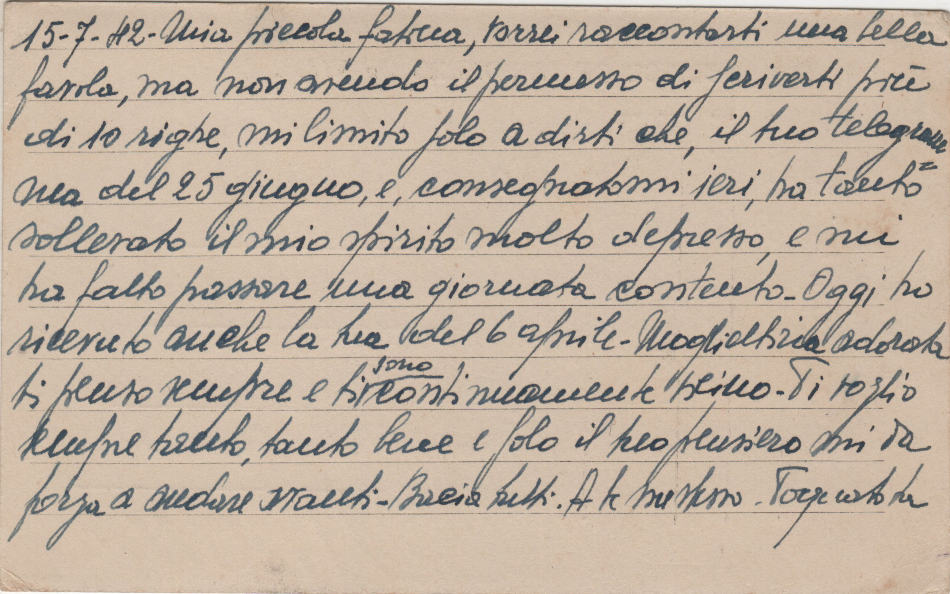 15-7-42- Mia piccola fatina, vorrei raccontarti una bella
favola, ma non avendo il permesso di scriverti più
di 10 righe, mi limito solo a dirti che, il tuo telegram
ma del 25 giugno, e, consegnatomi ieri, ha tanto=
sollevato il mio spirito molto depresso, e mi
ha fatto passare una giornata contento- Oggi ho
ricevuto anche la tua del 6 aprile- Mogliettina adorata
ti penso sempre e ti sono continuamente vicino- Ti voglio
sempre tanto, tanto bene e solo il tuo pensiero mi dà
forza a andare avanti- Bacia tutti. A te me stesso- Torquato tuo